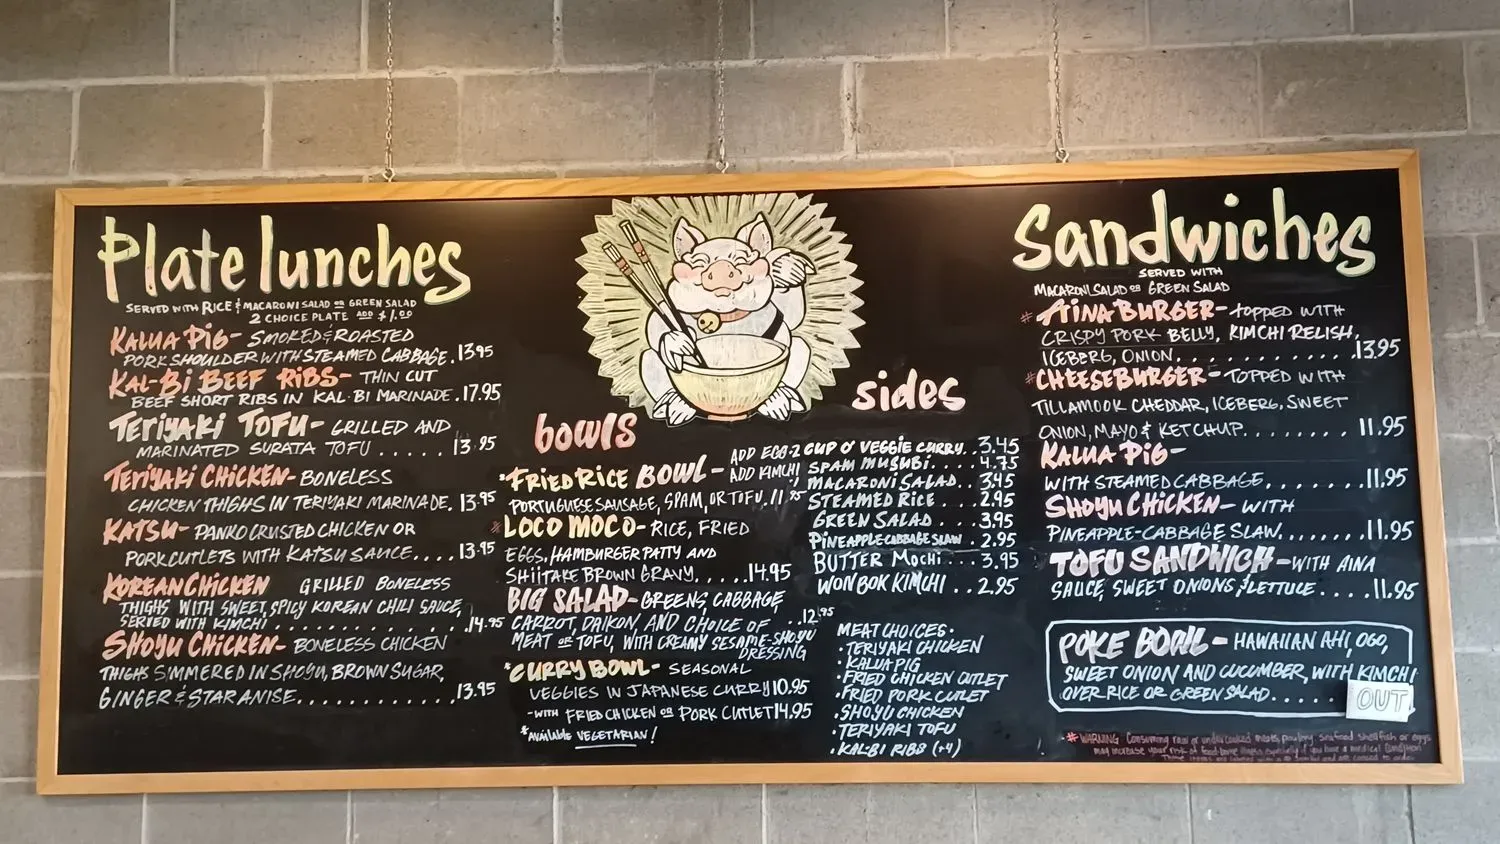 Plate lunches
SERVED WITH RICE & MACARONI SALAD OR GREEN SALAD
2 CHOICE PLATE ADD $1.00
KALUA PIG- SMOKED & ROASTED
PORK SHOULDER WITH STEAMED CABBAGE. 13.95
KAL-BI BEEF RIBS- THIN CUT
BEEF SHORT RIBS IN KAL-BI MARINADE. 17.95
TERIYAKI TOFU- GRILLED AND
MARINATED SURATA TOFU ..... 13.95
TERIYAKI CHICKEN- BONELESS
CHICKEN THIGHS IN TERIYAKI MARINADE. 13.95
KATSU- PANKO CRUSTED CHICKEN OR
PORK CUTLETS WITH KATSU SAUCE.... 13.95
KOREAN CHICKEN GRILLED BONELESS
THIGHS WITH SWEET, SPICY KOREAN CHILI SAUCE,
SERVED WITH KIMCHI .............. 14.95
SHOYU CHICKEN- BONELESS CHICKEN
THIGHS SIMMERED IN SHOYU, BROWN SUGAR,
GINGER & STAR ANISE............. 13.95
bowls
*FRIED RICE BOWL- ADD EGG-2
ADD KIMCHI
PORTUGUESE SAUSAGE, SPAM, OR TOFU. 11.95
*LOCO MOCO- RICE, FRIED
EGGS, HAMBURGER PATTY AND
SHIITAKE BROWN GRAVY......14.95
BIG SALAD- GREENS, CABBAGE,
CARROT, DAIKON, AND CHOICE OF ..12.95
MEAT OR TOFU, WITH CREAMY SESAME-SHOYU
DRESSING
*CURRY BOWL- SEASONAL
VEGGIES IN JAPANESE CURRY 10.95
-WITH FRIED CHICKEN OR PORK CUTLET 14.95
*Available VEGETARIAN!
sides
CUP O' VEGGIE CURRY.. 3.45
SPAM MUSUBI.... 4.75
MACARONI SALAD.. 3.45
STEAMED RICE ... 2.95
GREEN SALAD ... 3.95
PINEAPPLE-CABBAGE SLAW . 2.95
BUTTER MOCHI ... 3.95
WON BOK KIMCHI .. 2.95
MEAT CHOICES·
·TERIYAKI CHICKEN
·KALUA PIG
·FRIED CHICKEN CUTLET
·FRIED PORK CUTLET
·SHOYU CHICKEN
·TERIYAKI TOFU
·KAL-BI RIBS (+4)
Sandwiches
SERVED WITH
MACARONI SALAD OR GREEN SALAD
*AINA BURGER- TOPPED WITH
CRISPY PORK BELLY, KIMCHI RELISH,
ICEBERG, ONION............13.95
*CHEESEBURGER- TOPPED WITH
TILLAMOOK CHEDDAR, ICEBERG, SWEET
ONION, MAYO & KETCHUP........ 11.95
KALUA PIG-
WITH STEAMED CABBAGE........11.95
SHOYU CHICKEN- WITH
PINEAPPLE-CABBAGE SLAW.......11.95
TOFU SANDWICH-WITH AINA
SAUCE, SWEET ONIONS, & LETTUCE ....11.95
POKE BOWL- HAWAIIAN AHI, OGO,
SWEET ONION AND CUCUMBER, WITH KIMCHI
OVER RICE OR GREEN SALAD......
OUT
*WARNING Consuming raw or undercooked meats, poultry, seafood shellfish or eggs
may increase your risk of food borne illness especially if you have a medical condition
These items are